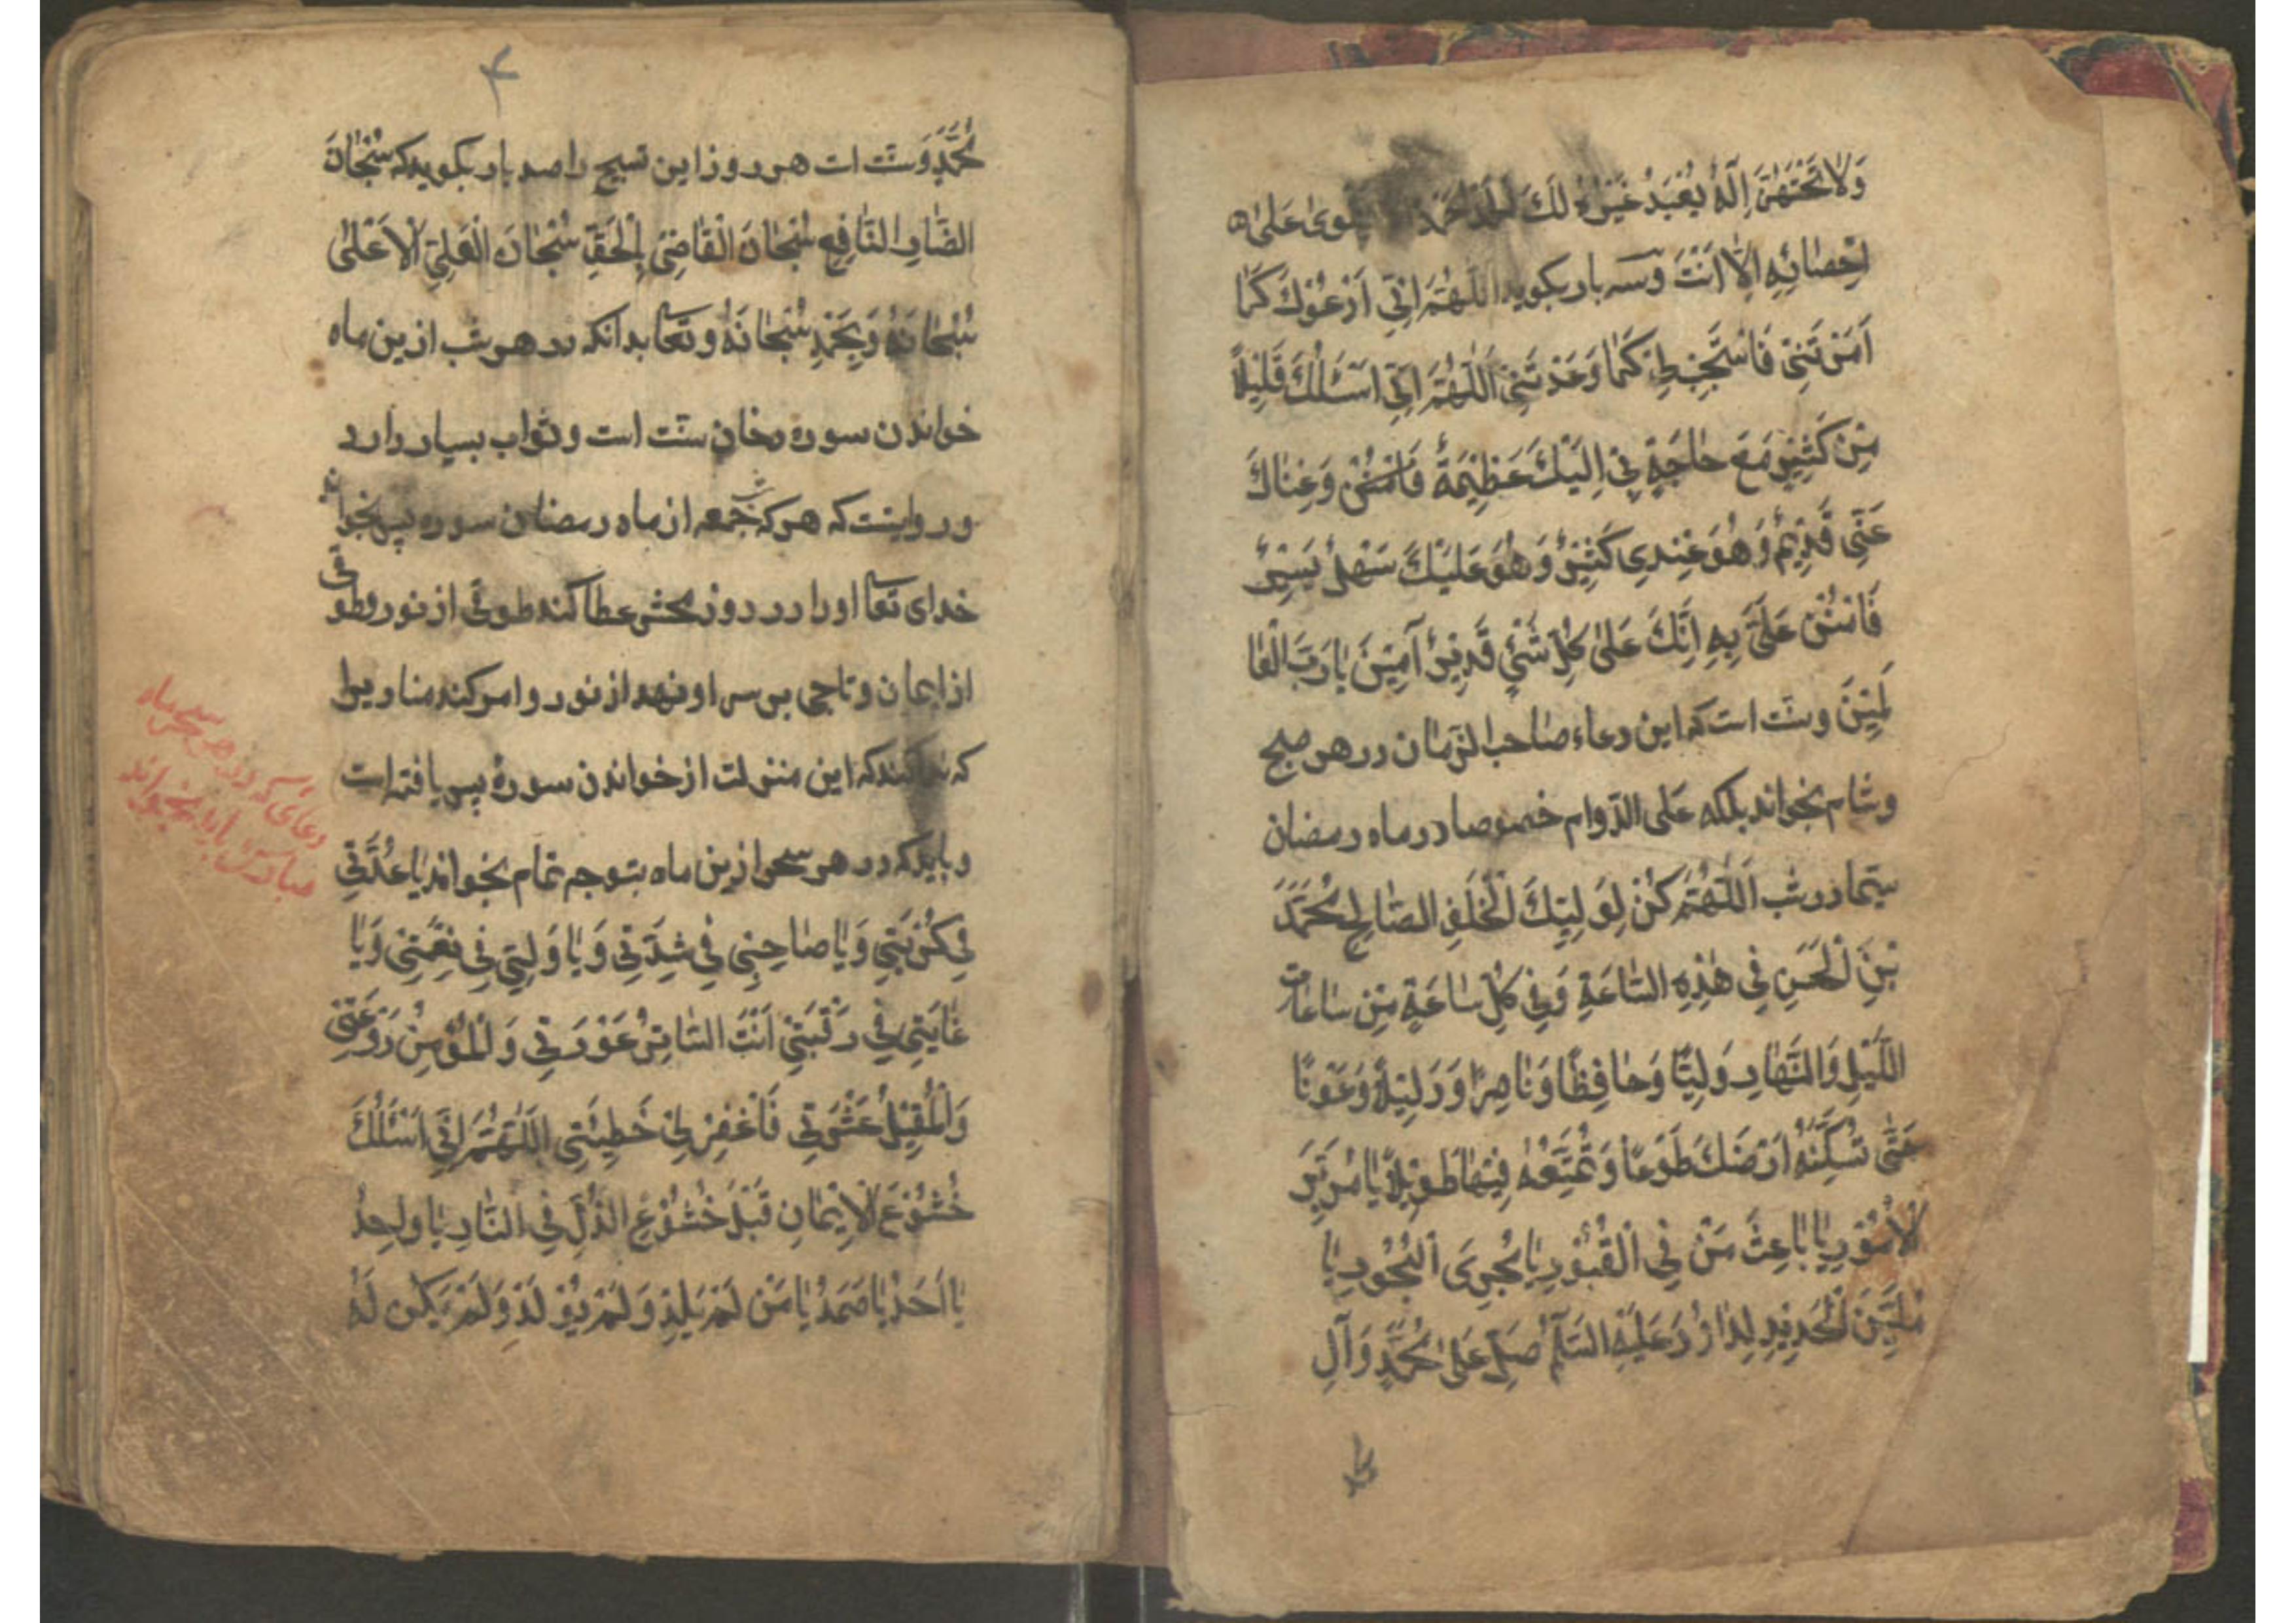 وَلَا تَحْتَهُنَّ إِلَهٌ يُعْبَدُ غَيْرُهُ لَكَ الْحَمْدُ حَمْدًا يَقْوَىٰ عَلَىٰ
اِحْصَائِهِ اِلَّا اَنْتَ وسه بار بکوید اَللّٰهُمَّ اِنِّی اَدْعُوْكَ كَمَا
اَمَرْتَنِیْ فَاسْتَجِبْ لِیْ كَمَا وَعَدْتَنِیْ اَللّٰهُمَّ اِنِّی اَسْئَلُكَ قَلِیْلًا
مِنْ كَثِیْرٍ مَعَ حَاجَةٍ بِیْ اِلَیْكَ عَظِیْمَةٌ وَغِنَاكَ
عَنِّی قَدِیْمٌ وَهُوَ عِنْدِی كَثِیْرٌ وَهُوَ عَلَیْكَ سَهْلٌ یَسِیْرٌ
فَامْنُنْ عَلَیَّ بِهِ اِنَّكَ عَلَىٰ كُلِّ شَیْءٍ قَدِیْرٌ آمِیْنَ یَا رَبَّ الْعَا
لَمِیْنَ وسنّت است که این دعاء صاحب الزّمان در هر صبح
وشام بخواند بلکه عَلی الدّوام خصوصا در ماه رمضان
سیّما در شب اَللّٰهُمَّ كُنْ لِوَلِیِّكَ الْخَلَفِ الصَّالِحِ مُحَمَّدَ
بْنِ الْحَسَنِ فِی هٰذِهِ السَّاعَةِ وَفِی كُلِّ سَاعَةٍ مِنْ سَاعَات
اللَّیْلِ وَالنَّهَارِ وَلِیًّا وَحَافِظًا وَنَاصِرًا وَدَلِیْلًا وَعَوْنًا
حَتّٰی تُسْكِنَهُ اَرْضَكَ طَوْعًا وَتُمَتِّعَهُ فِیْهَا طَوِیْلًا یَا مُدَبِّرَ
الْاُمُوْرِ یَا بَاعِثَ مَنْ فِی الْقُبُوْرِ یَا مُجْرِیَ الْبُحُوْرِ یَا
مُلَیِّنَ الْحَدِیْدِ لِدَاوُدَ عَلَیْهِ السَّلَمُ صَلِّ عَلیٰ مُحَمَّدٍ وَآلِ
۴
مُحَمَّدٍ وسنّت است هر روز این تسبیح را صد بار بکوید که سُبْحَانَ
الضَّارِ النَّافِعِ سُبْحَانَ الْقَاضِیْ بِالْحَقِّ سُبْحَانَ الْعَلِیِّ الْاَعْلیٰ
سُبْحَانَهُ وَبِحَمْدِهِ سُبْحَانَهُ وتعا بدانکه در هر شب ازین ماه
خواندن سوره دخان سنّت است وثواب بسیار دارد
ورواینت که هر که شب جمعه از ماه رمضان سوره یس بخواند
خدای تعا اورا در روز محشر عطا کند طوقی از نور وطوقی
از ایمان وتاجی بر سر او نهد از نور وامر کند منادیرا
که ندا کند که این منزلت از خواندن سورۀ یس یافته است
وباید که در هر سحر ازین ماه بتوجه تمام بخواند یَا عُدَّتِیْ
فِی كُرْبَتِی وَیَا صَاحِبِیْ فِی شِدَّتِی وَیَا وَلِیِّی فِی نِعْمَتِیْ وَیَا
غَایَتِی فِی رَغْبَتِیْ اَنْتَ السَّاتِرُ عَوْرَتِی وَالْمُؤْمِنُ رَوْعَتِیْ
وَالْمُقِیْلُ عَثْرَتِی فَاغْفِرْ لِیْ خَطِیْئَتِی اَللّٰهُمَّ اِنِّی اَسْئَلُكَ
خُشُوْعَ الْاِیْمَانِ قَبْلَ خُشُوْعِ الذُّلِّ فِی النَّارِ یَا وَاحِدُ
یَا اَحَدُ یَا صَمَدُ یَا مَنْ لَمْ یَلِدْ وَلَمْ یُوْلَدْ وَلَمْ یَكُنْ لَهُ
دعائی که در هر سحر ماه
مبارک باید بخواند